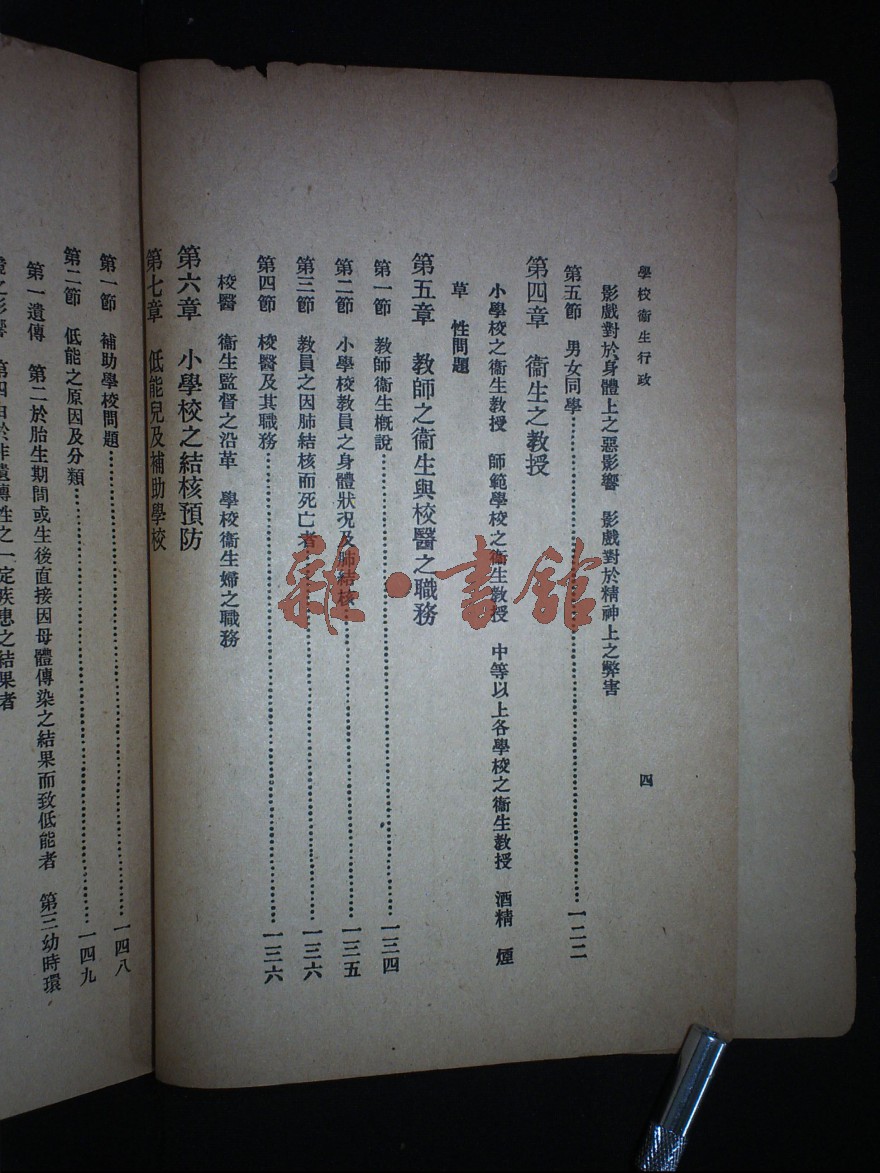 學校衞生行政 四
影戲對於身體上之惡影響 影戲對於精神上之弊害
第五節 男女同學……一二二
第四章 衞生之教授
小學校之衞生教授 師範學校之衞生教授 中等以上各學校之衞生教授 酒精 煙
草 性問題
第五章 教師之衞生與校醫之職務
第一節 教師衞生槪說……一三四
第二節 小學校教員之身體狀況及肺結核……一三五
第三節 教員之因肺結核而死亡者……一三六
第四節 校醫及其職務……一三六
校醫 衞生監督之沿革 學校衞生婦之職務
第六章 小學校之結核預防
第七章 低能兒及補助學校
第一節 補助學校問題……一四八
第二節 低能之原因及分類……一四九
第一遺傳 第二於胎生期間或生後直接因母體傳染之結果而致低能者 第三幼時環
之影響 第四由於非遺傳性之一定疾患之結果者
雜·書館